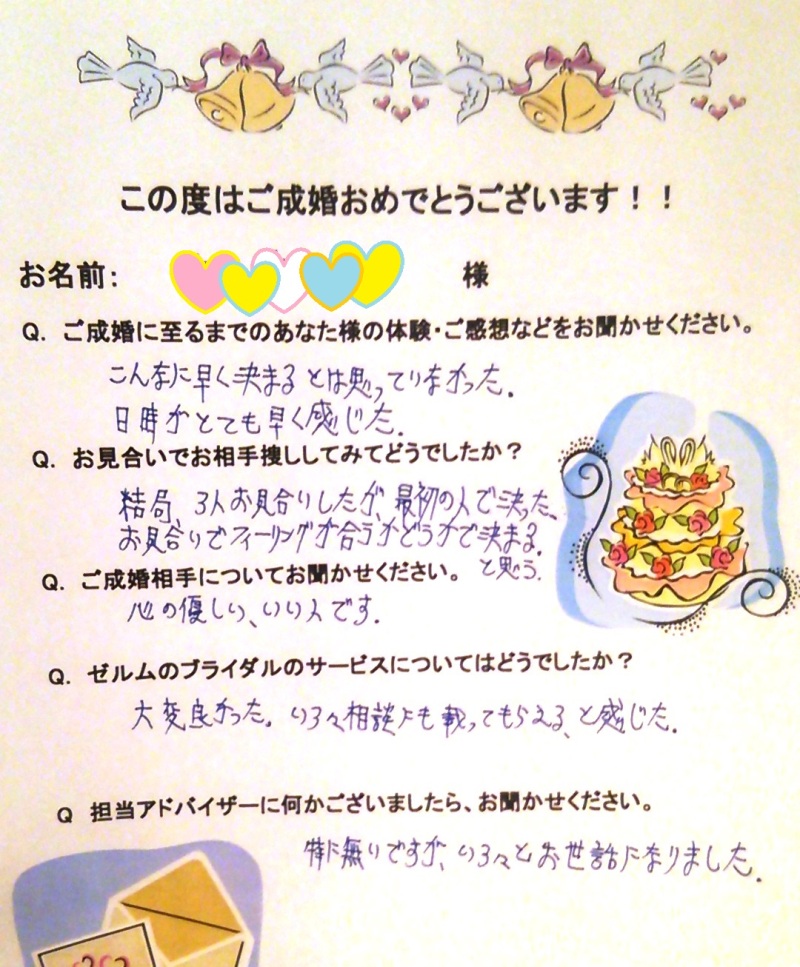 この度はご成婚おめでとうございます！！
お名前： 様
Q. ご成婚に至るまでのあなた様の体験・ご感想などをお聞かせください。
こんなに早く決まるとは思っていなかった。
日時がとても早く感じた。
Q. お見合いでお相手捜ししてみてどうでしたか？
結局、3人お見合いしたが、最初の人で決った、
お見合いでフィーリングが合うかどうかで決まる。
と思う。
Q. ご成婚相手についてお聞かせください。
心の優しい、いい人です。
Q. ゼルムのブライダルのサービスについてはどうでしたか？
大変良かった。いろ々相談にも載ってもらえる、と感じた。
Q 担当アドバイザーに何かございましたら、お聞かせください。
特に無いですが、いろ々とお世話になりました。